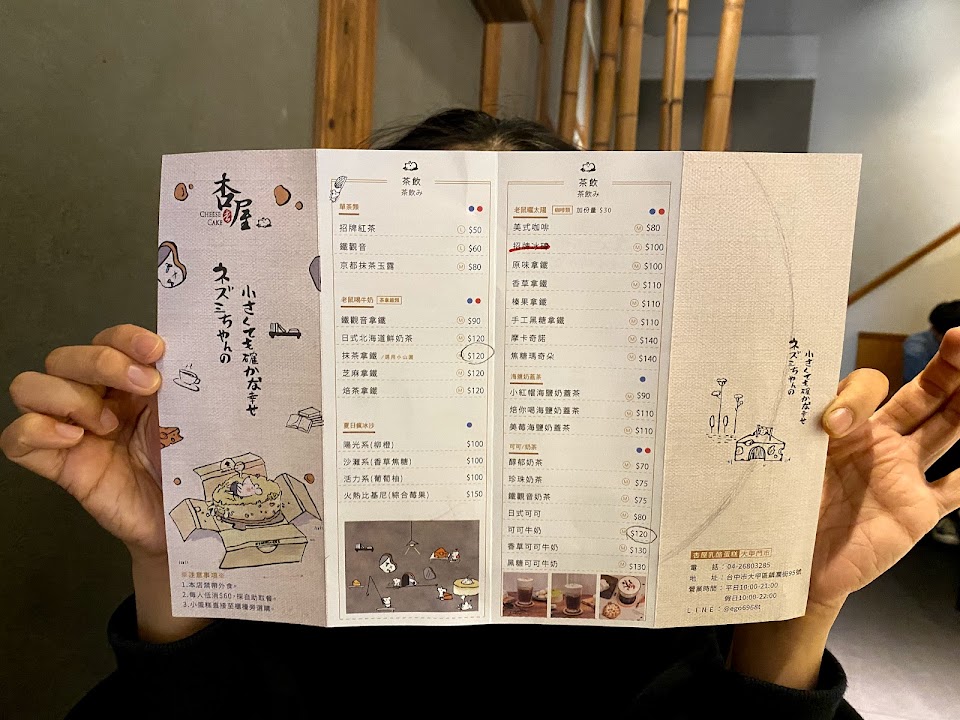 杏屋
CHEESE
CAKE
小さくても確かな幸せ
ネズミちゃんの
※注意事項※
1.本店禁帶外食。
2.每人低消$60，採自助取餐。
3.小蛋糕直接至櫃檯旁選購。
茶飲
茶飲み
單茶類
招牌紅茶 L $50
鐵觀音 L $60
京都抹茶玉露 M $80
老鼠喝牛奶 茶拿鐵類
鐵觀音拿鐵 M $90
日式北海道鮮奶茶 M $120
抹茶拿鐵 M $120
芝麻拿鐵 M $120
焙茶拿鐵 M $120
夏日瘋冰沙
陽光系(柳橙) $100
沙灘系(香草焦糖) $100
活力系(葡萄柚) $100
火熱比基尼(綜合莓果) $150
茶飲
茶飲み
老鼠曬太陽 咖啡類 加份量 $30
美式咖啡 M $80
招牌冰磚 M $100
原味拿鐵 M $100
香草拿鐵 M $110
榛果拿鐵 M $110
手工黑糖拿鐵 M $110
摩卡奇諾 M $140
焦糖瑪奇朵 M $140
海鹽奶蓋茶
小紅帽海鹽奶蓋茶 M $90
焙你喝海鹽奶蓋茶 M $110
美莓海鹽奶蓋茶 M $110
可可/奶茶
醇郁奶茶 M $70
珍珠奶茶 M $75
鐵觀音奶茶 M $75
日式可可 M $80
可可牛奶 M $120
香草可可牛奶 M $130
黑糖可可牛奶 M $130
小さくても確かな幸せ
ネズミちゃんの
杏屋乳酪蛋糕 大甲門市
電 話：04-26803285
地 址：台中市大甲區鎮瀾街95號
營業時間：平日10:00-21:00
假日10:00-22:00
LINE：@ego6968t